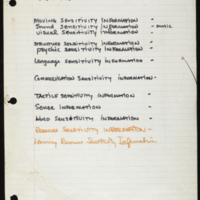 Moving Sensitivity Information -
Sound Sensitivity Information - music
Visual Sensitivity Information -
Structure Sensitivity Information -
Psychic Sensitivity Information -
Language Sensitivity Information -
Communication Sensitivity Information -
Tactile Sensitivity Information -
Sense Information -
Word Sensitivity Information -
Sensitivity Information -
Learning Sensitivity Information